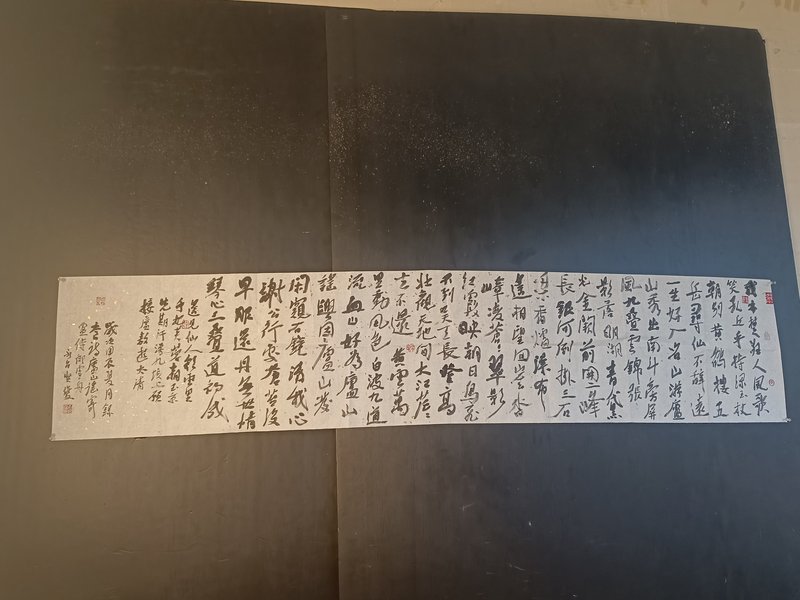 我本楚狂人風歌
笑孔丘手持綠玉杖
朝別黃鶴樓五
岳尋仙不辭遠
一生好入名山遊廬
山秀出南斗旁屏
風九疊雲錦張
影落明湖青黛
光金闕前開二峰
長銀河倒掛三石
梁香爐瀑布
遙相望回崖沓
嶂凌蒼〻翠影
紅霞映朝日鳥飛
不到吳天長登高
壯觀天地間大江茫〻
去不還黃雲萬
里動風色白波九道
流雪山好為廬山
謠興因廬山發
閑窺石鏡清我心
謝公行處蒼苔沒
早服還丹無世情
琴心三疊道初成
遙見仙人彩雲里
手把芙蓉朝玉京
先期汗漫九垓上願
接盧敖遊太清
歲次夏月錄
李白詩廬山謠寄
盧侍御虛舟